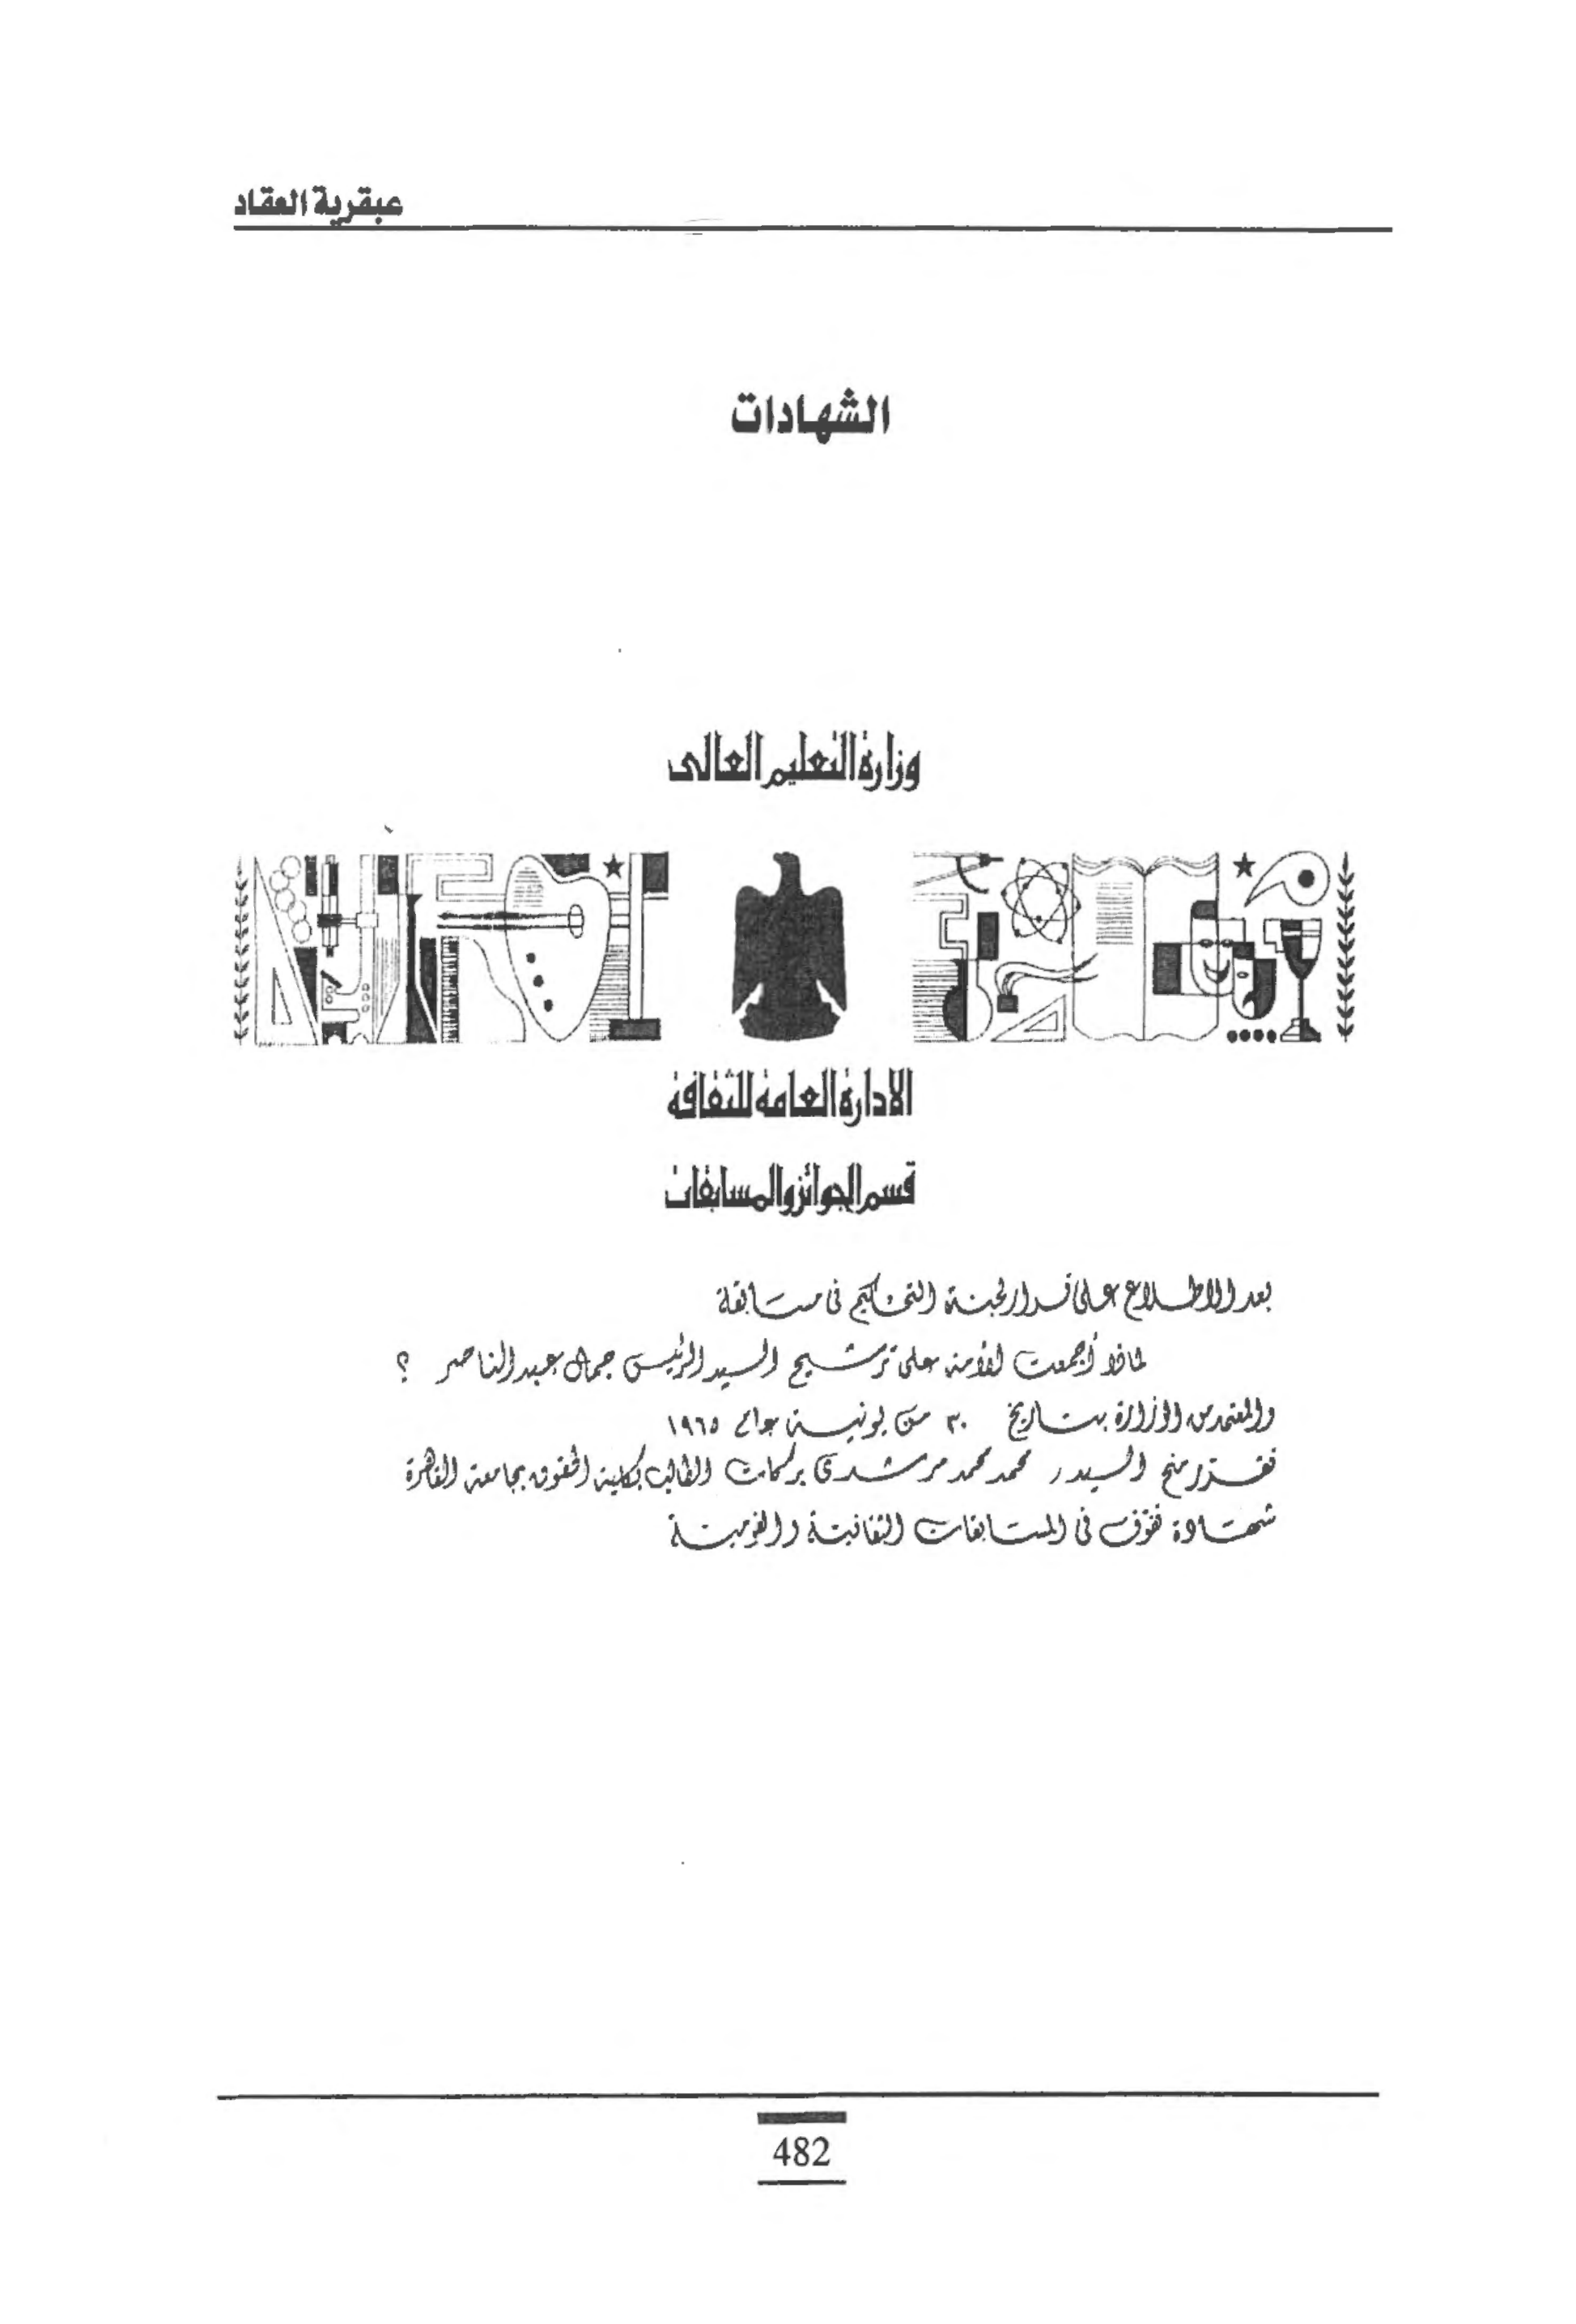 عبقرية العقاد
الشهادات
وزارة التعليم العالى
الادارة العامة للثقافة
قسم الجوائز والمسابقات
بعد الاطلاع على قرار لجنة التحكيم فى مسابقة
لماذا أجمعت الأمة على ترشيح السيد الرئيس جمال عبد الناصر ؟
والمعتمد من الوزارة بتاريخ ٣٠ من يونية ١٩٦٥
نقرر منح السيد / محمد محمد مرشدى بركات الطالب بكلية الحقوق بجامعة القاهرة
شهادة تفوق فى المسابقات الثقافية والقومية
482